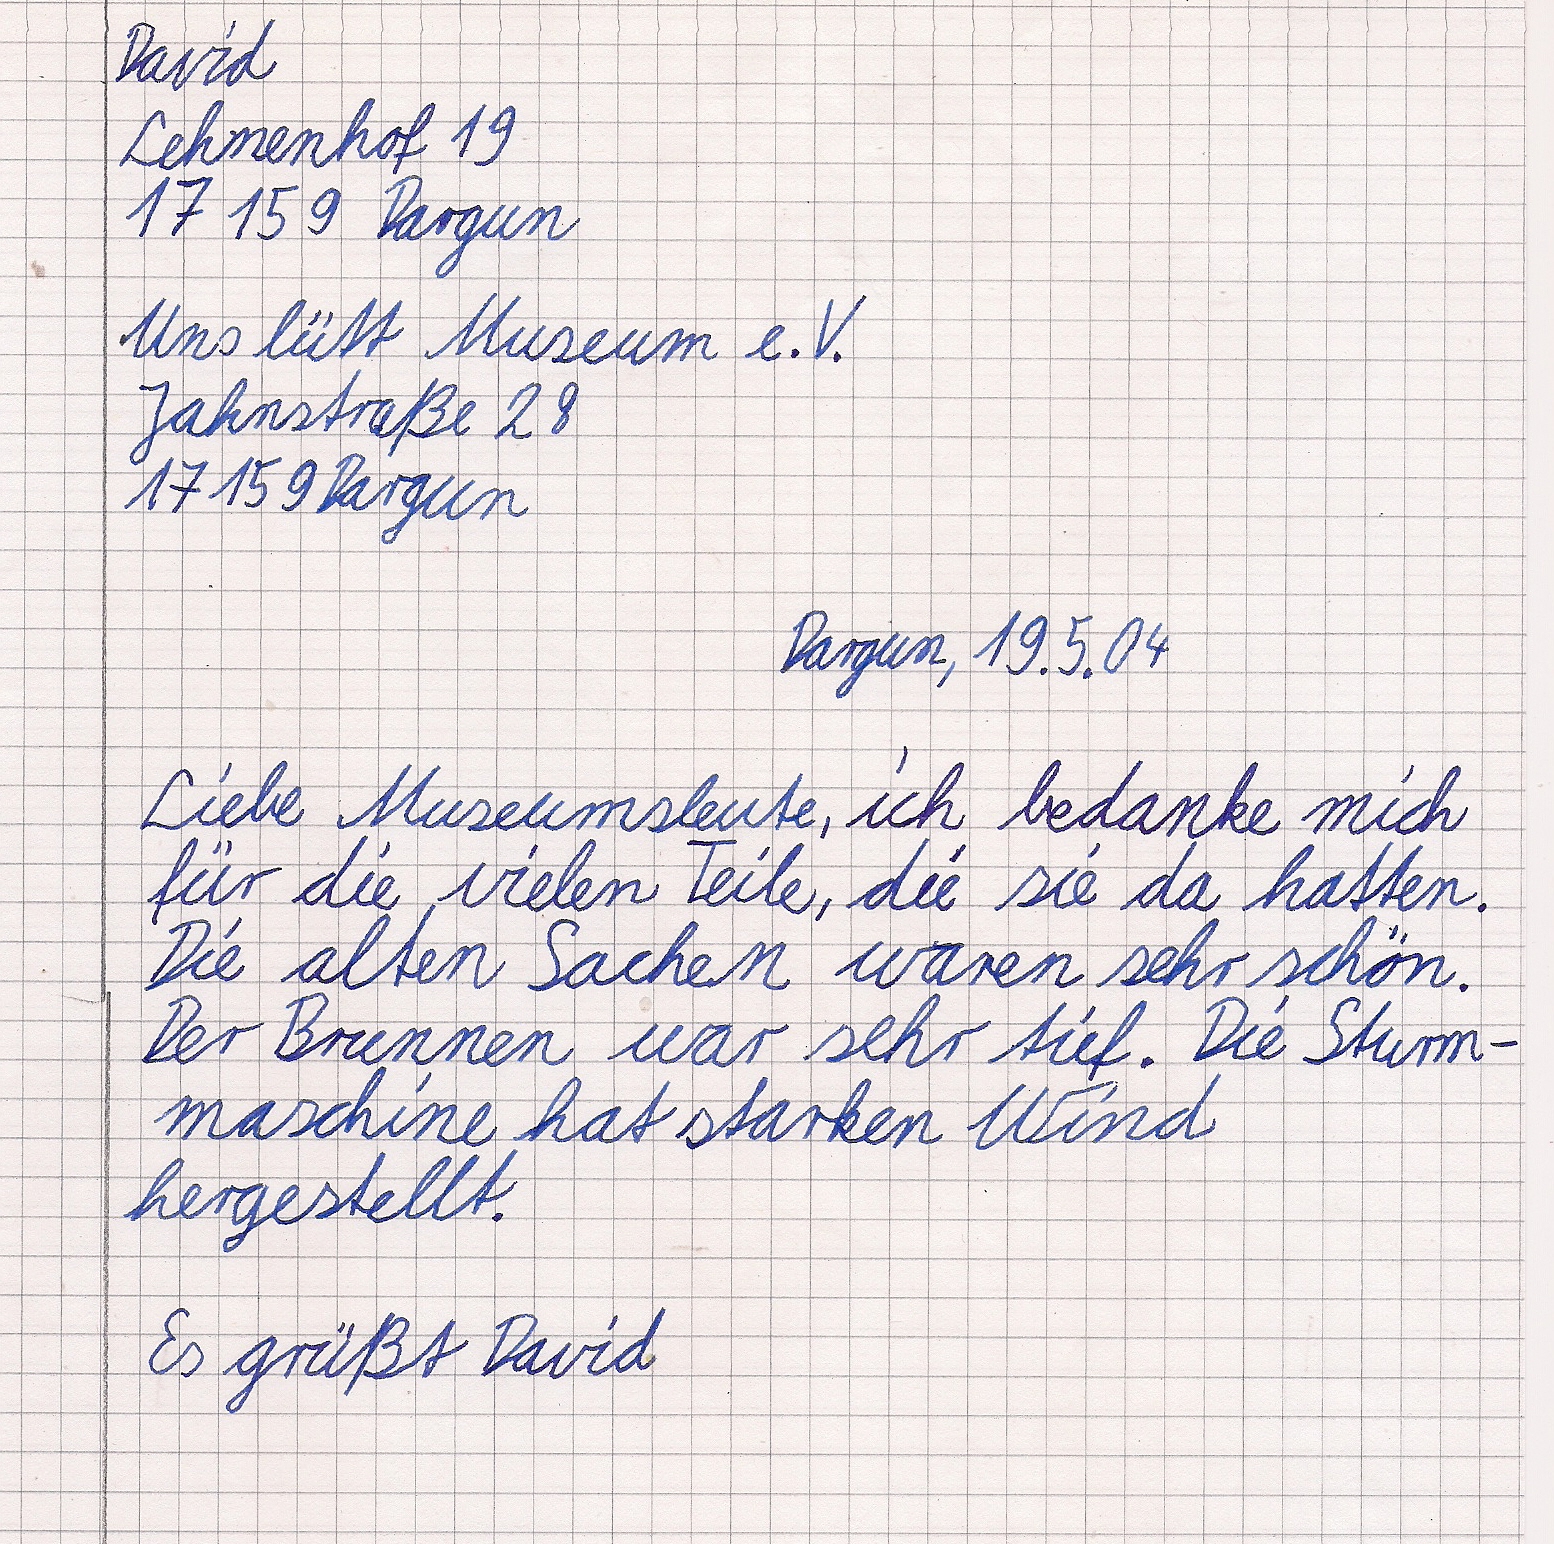 David
Lehmenhof 19
17 159 Dargun
Uns lütt Museum e.V.
Jahnstraße 28
17 159 Dargun
Dargun, 19.5.04
Liebe Museumsleute, ich bedanke mich
für die vielen Teile, die sie da hatten.
Die alten Sachen waren sehr schön.
Der Brunnen war sehr tief. Die Sturm-
maschine hat starken Wind
hergestellt.
Es grüßt David